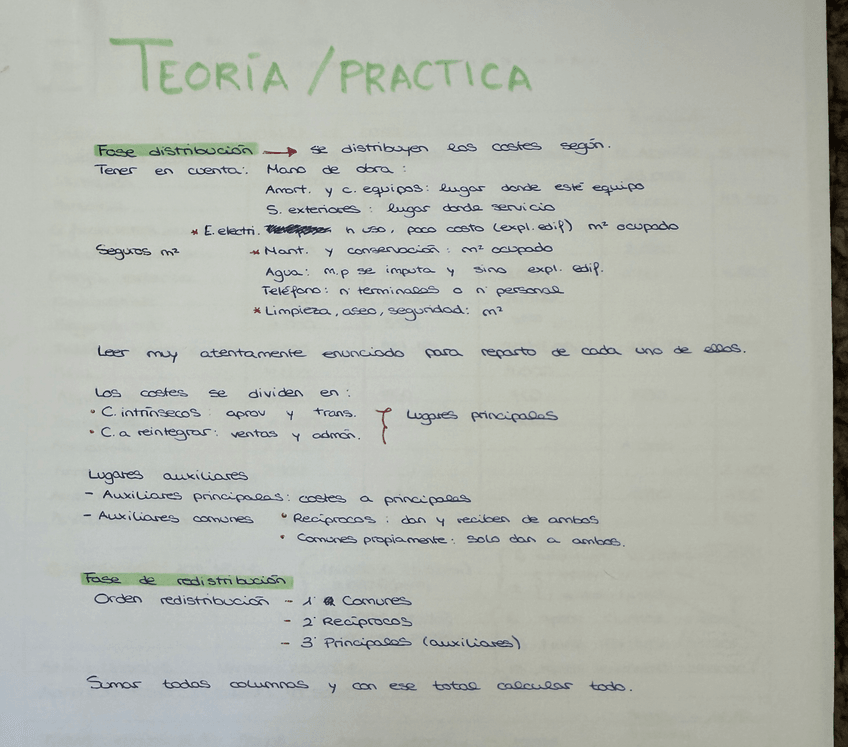 TEORÍA / PRACTICA
Fase distribución → se distribuyen los costes según.
Tener en cuenta: Mano de obra:
Amort. y c. equipos: lugar donde esté equipo
S. exteriores: lugar donde servicio
* E. electri. n uso, poco costo (expl. edif) m² ocupado
Seguros m² * Mant. y conservación: m² ocupado
Agua: m.p se imputa y sino expl. edif.
Teléfono: nº terminales o nº personal
* Limpieza, aseo, seguridad: m²
Leer muy atentamente enunciado para reparto de cada uno de ellos.
Los costes se dividen en:
• C. intrínsecos: aprov y trans. } Lugares principales
• C. a reintegrar: ventas y admón.
Lugares auxiliares
- Auxiliares principales: costes a principales
- Auxiliares comunes • Recíprocos: dan y reciben de ambos
• Comunes propiamente: solo dan a ambos.
Fase de redistribución
Orden redistribución - 1º Comunes
- 2º Recíprocos
- 3º Principales (auxiliares)
Sumar todas columnas y con ese total calcular todo.